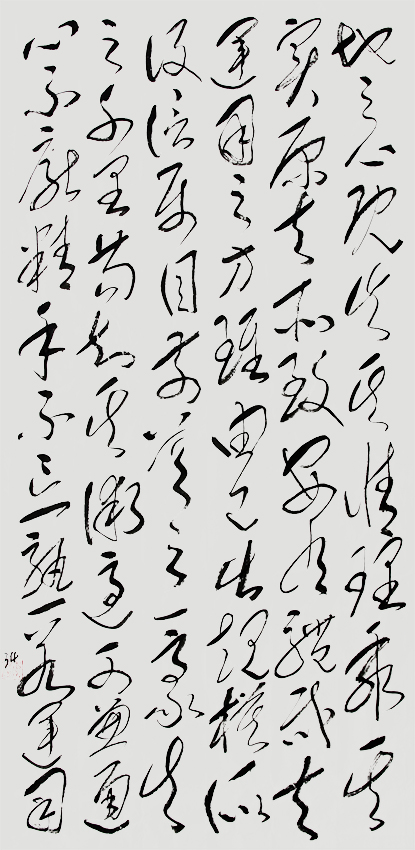 地之心既失其情理乖其
實原夫所致安有體哉夫
運用之方雖由己出規模所
設信屬目前差之一豪失
之千里苟知其術適可兼通
心不厭精手不忘熟若運用